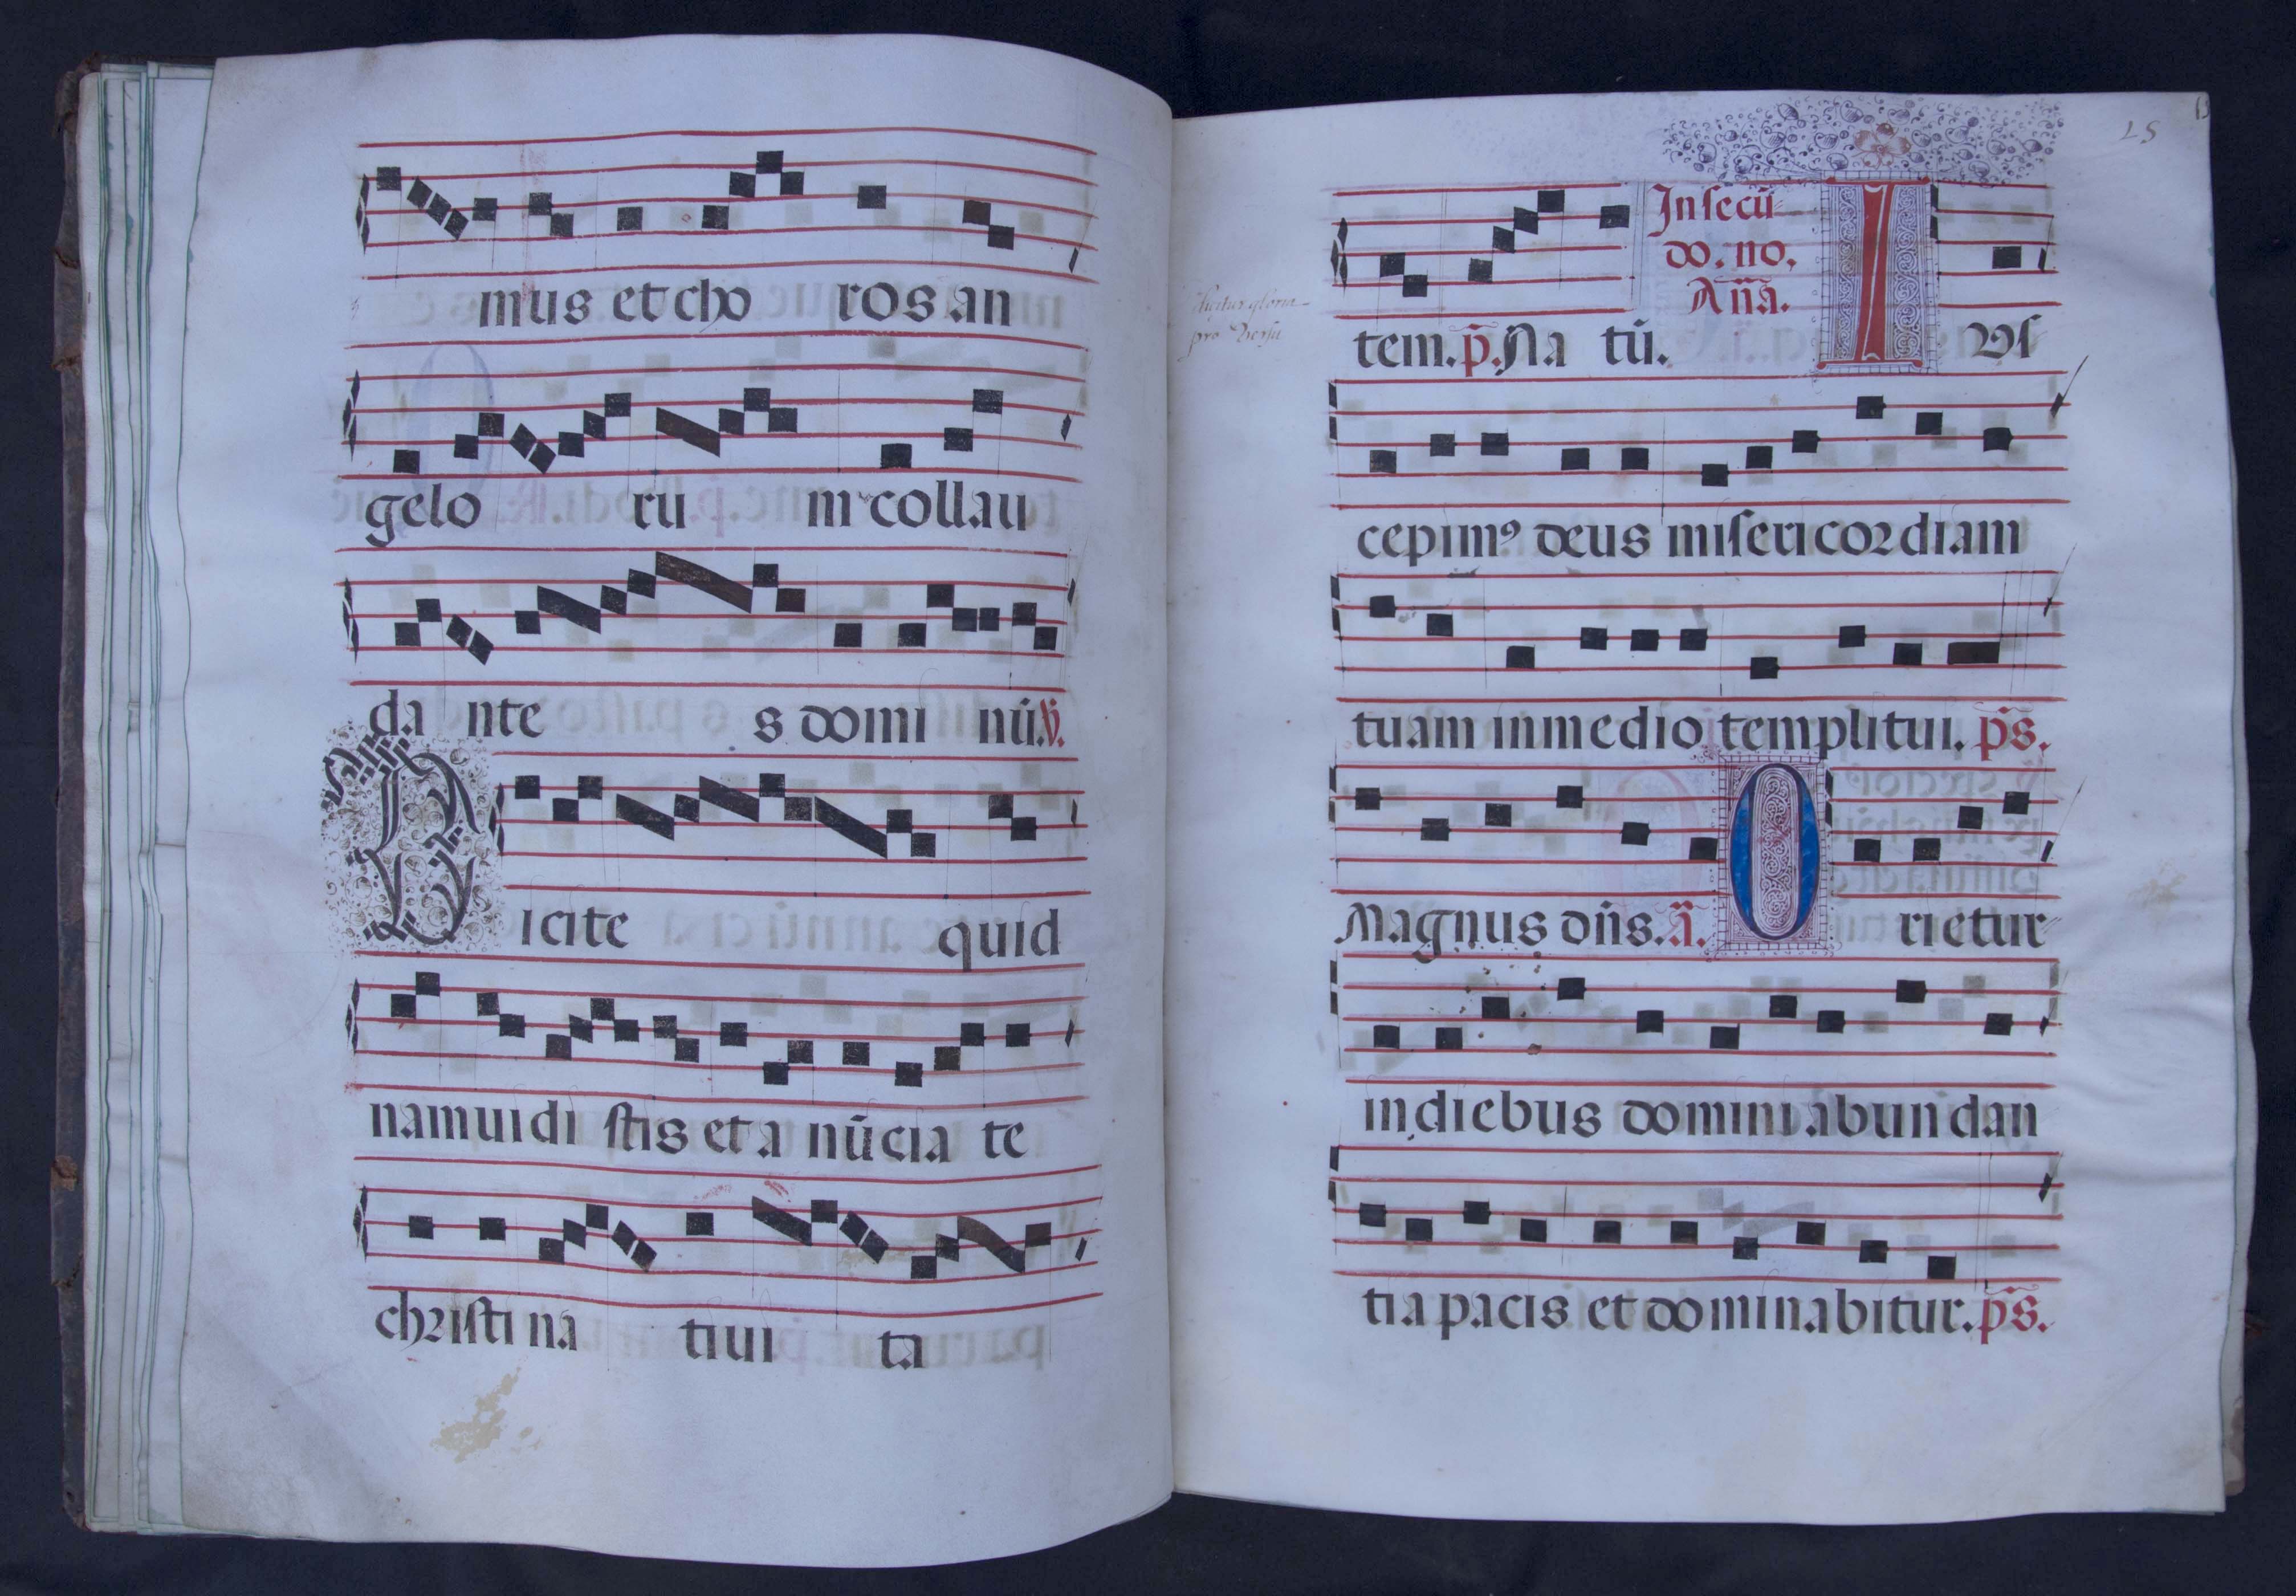 mus et cho ros an
gelo ru m collau
da nte s domi nū. ℣.
Dicite quid
nam uidi stis et a nūcia te
christi na tiui ta
25
In secū
do. no.
Aña.
tem. p̄. Na tū. I Uſ
cepimꝰ deus miſeri cordiam
tuam in medio templi tui. p̄s.
Magnus dn̄s. ā. O rietur
in diebus domini abun dan
tia pacis et dominabitur. p̄s.